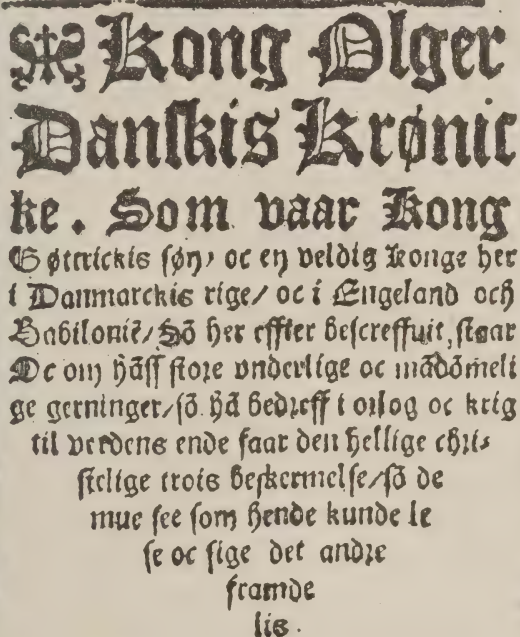 Kong Olger
Danskis Krønic
ke. Som vaar Kong
Gøttrickis søn, oc en veldig konge her
i Danmarckis rige/ oc i Engeland och
Babilonië/ Sō her effter bescreffuit staar
Oc om hāss store vnderlige oc mādōmeli
ge gerninger/ sō hā bedreff i orlog oc krig
til verdens ende faar den hellige chri⸗
stelige trois beskermelse/ sō de
mue see som hende kunde le
se oc sige det andre
framde
lis.